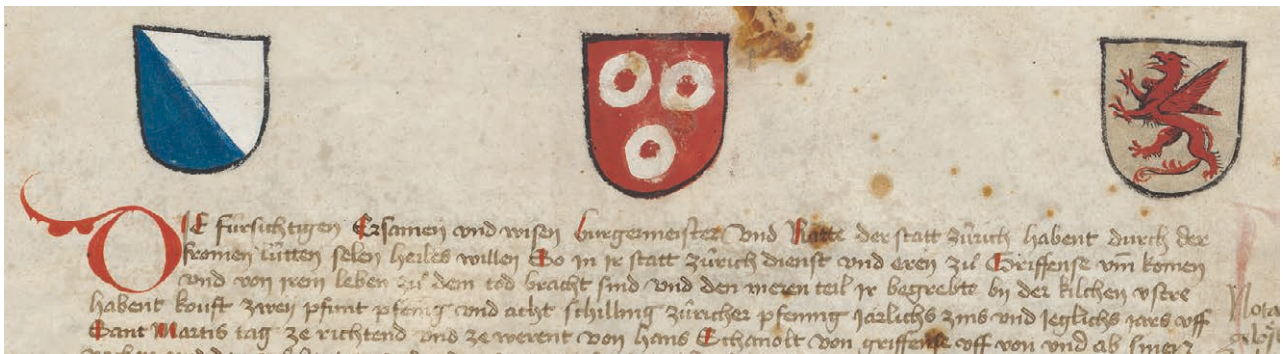 DIE fürsichtigen Ersamen vnd wisen burgermeister Vnd Rätte der statt zürich habent durch der
fromen lütten selen heiles willen So in ir statt zürich dienst vnd eren zu᷒ Griffense vm̄ komen
vnd von irem leben zu᷒ dem tod bracht sind vnd den meren teil ir begrebte by der kilchen vstre
habent kouft zwey pfunt pfenig vnd acht schilling züricher pfennig jarlichs zins vnd ieglichs jars vff
Sant Martis tag ze richtend vnd ze werent von Hans Schanolt von griffense vff von vnd ab siner
Nota